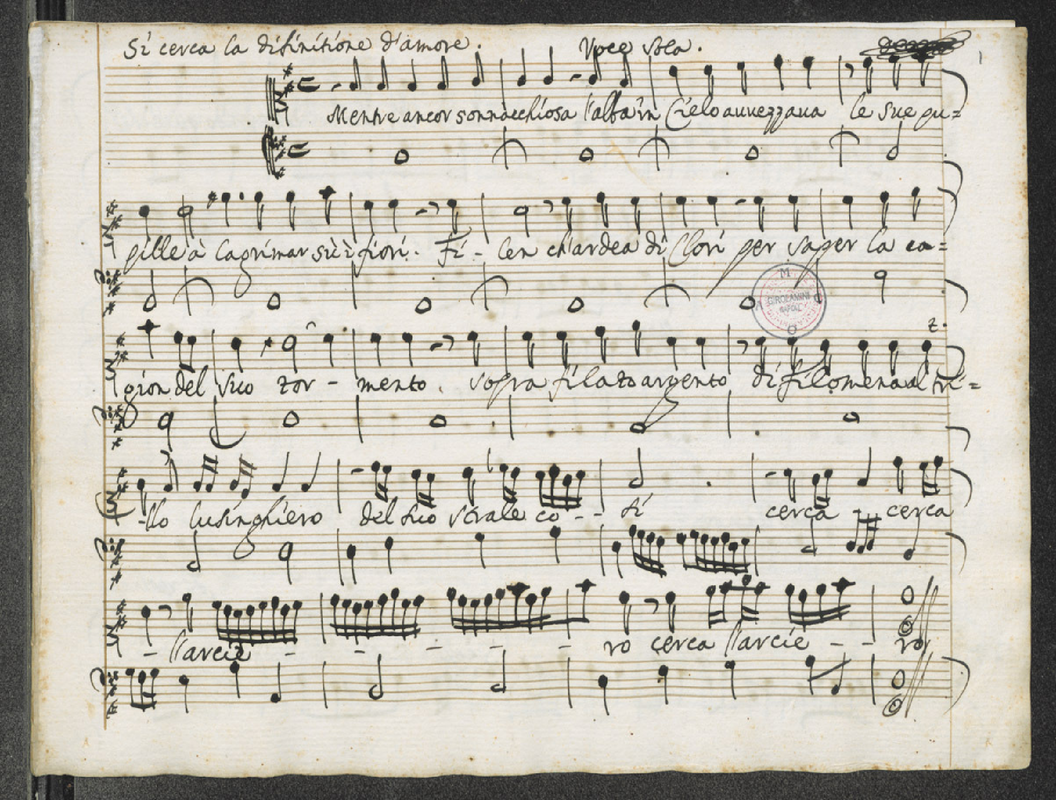 Si cerca la difinitione d'amore. Voce sola.
1
Mentre ancor sonnacchiosa l'alba in Cielo avvezzava le sue pu=
pille à lagrimar sù i fiori. Fi - len ch'ardea di Clori per saper la ca=
gion del suo tor - mento. sopra fila to argento di filomena al tri=
-llo lusinghiero del suo strale co - - si cerca - - cerca
- l'arcie - - - - ro cerca l'arcie - - ro